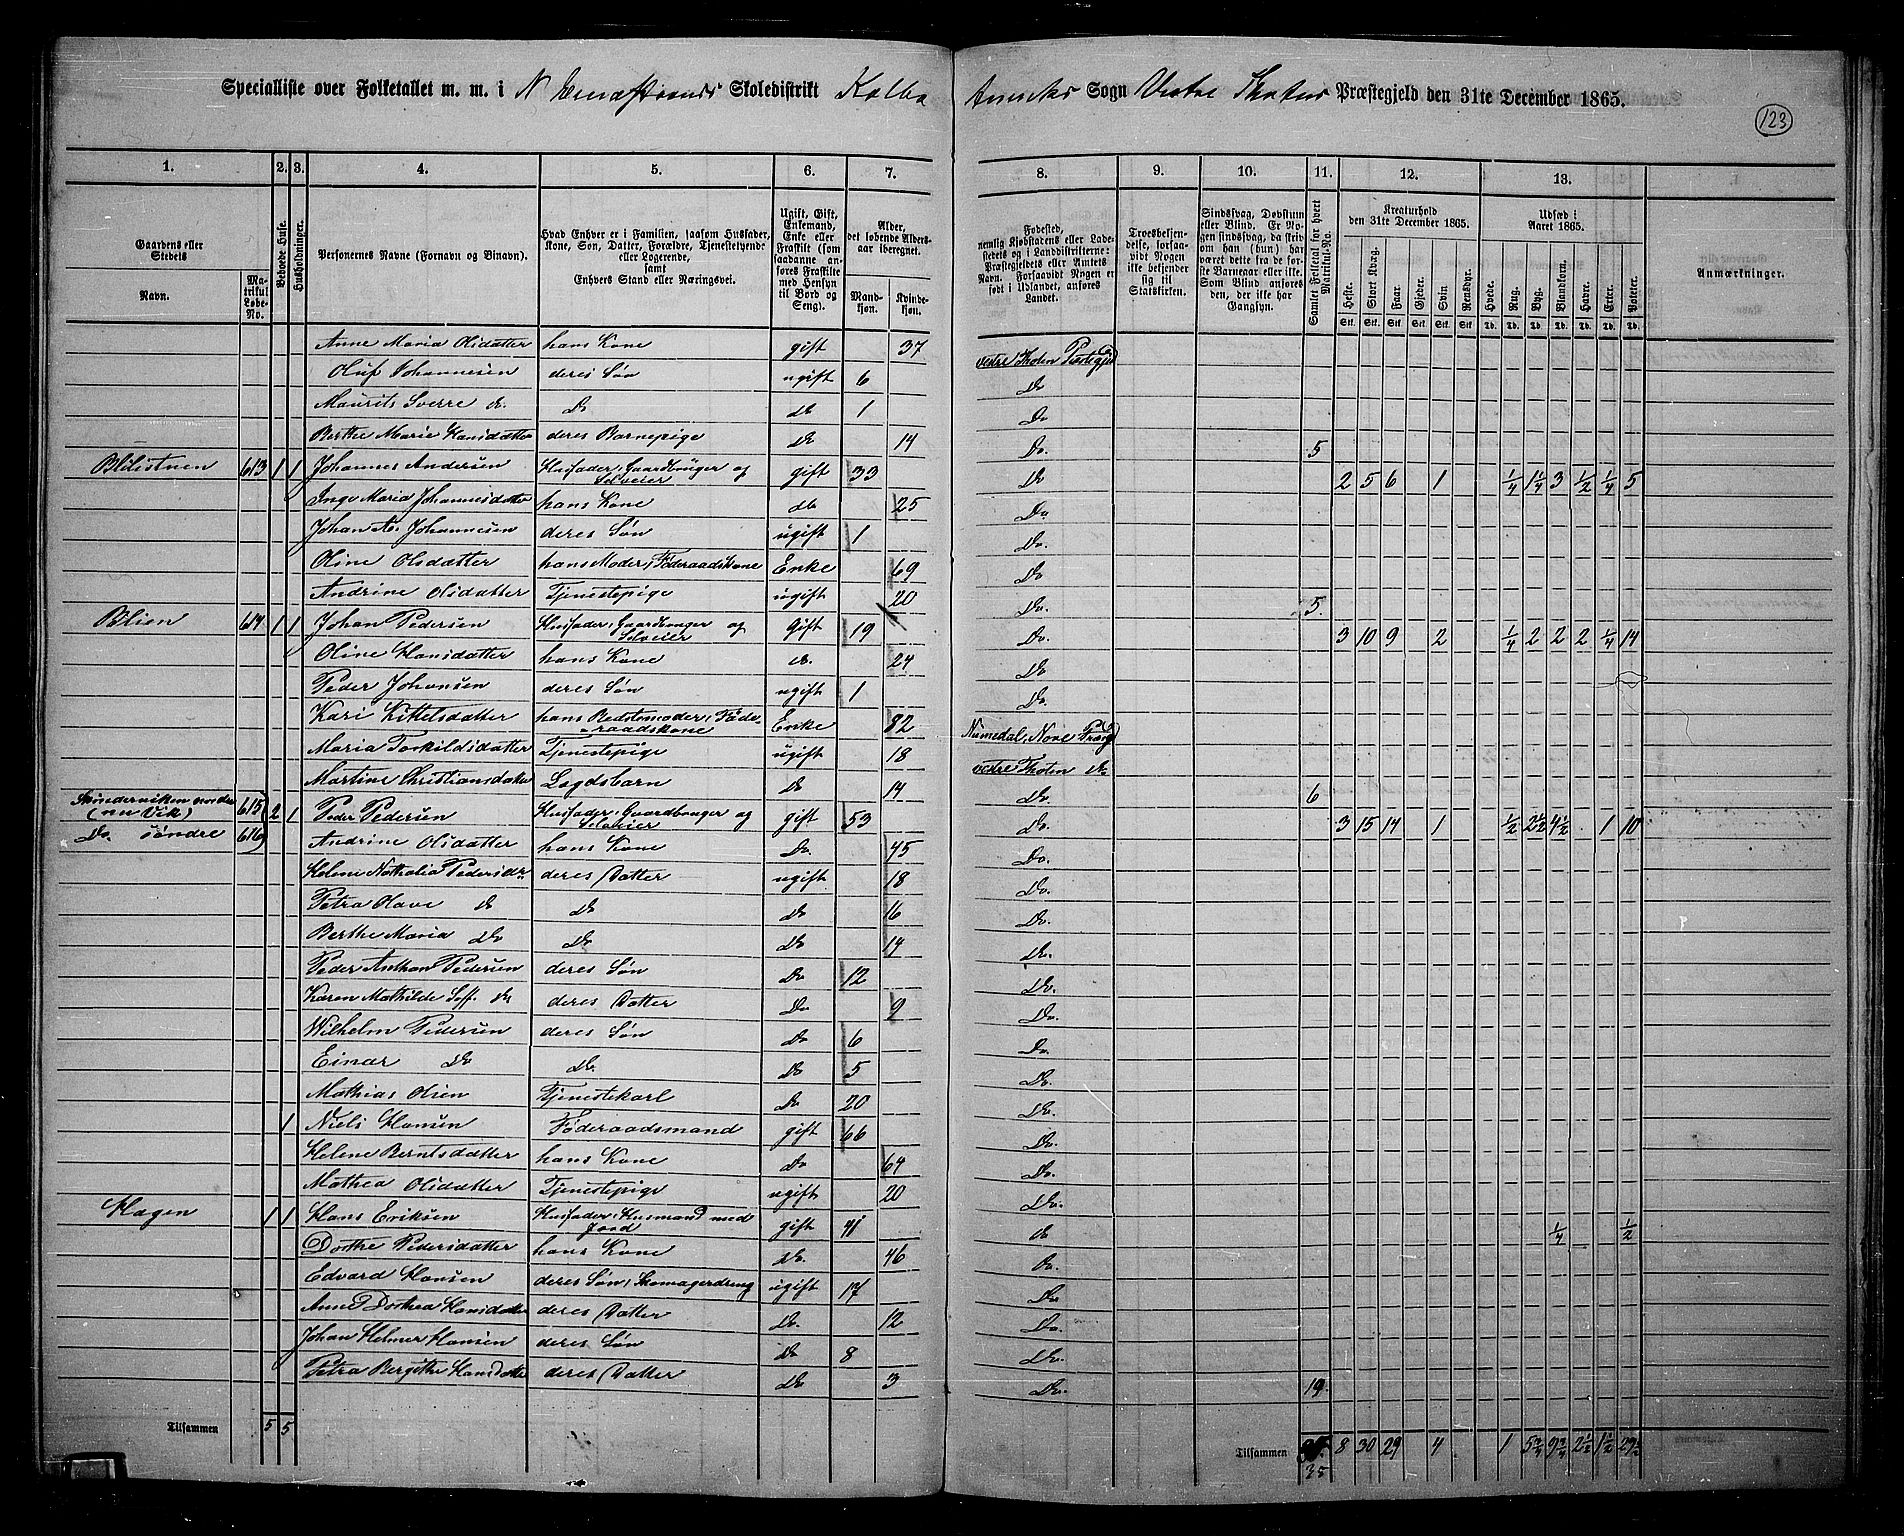 Specialliste over Folketallet m. m. i N Skoledistrikt Kolbo Annexs Sogn Vestre Thotens Præstegjeld den 31te December 1865.
123
1. 2. 3. 4. 5. 6. 7. 8. 9. 10. 11. 12. 13.
Gaardens eller Stedets
Navn. Matrikul Løbe-No.
Beboede Huse.
Husholdninger.
Personernes Navne (Fornavn og Binavn).
Hvad Enhver er i Familien, saasom Husfader, Kone, Søn, Datter, Forældre, Tjenestetyende eller Logerende, samt Enhvers Stand eller Næringsvei.
Ugift, Gift, Enkemand, Enke eller Fraskilt (som saadanne anføres Fraskilte med Hensyn til Bord og Seng).
Alder, det løbende Aldersaar iberegnet.
Mandkjøn. Kvindekjøn.
Fødested, nemlig Kjøbstadens eller Ladestedets og i Landdistrikterne: Præstegjeldets eller Amtets Navn. Forsaavidt Nogen er født i Udlandet, anføres Landet.
Troesbekjendelse, forsaavidt Nogen ikke bekjender sig til Statskirken.
Sindssvag, Døvstum eller Blind. Er Nogen sindssvag, da skriv om han (hun) har været dette fra de første Barneaar eller ikke. Som Blind anføres den, der ikke har Gangsyn.
Samlet Folketal for hvert Matrikul-No.
Kreaturhold den 31te December 1865.
Heste. Stort Kvæg. Faar. Gjeder. Svin Rensdyr.
Udsæd i Aaret 1865.
Hvede. Rug. Byg. Blandkorn. Havre. Erter. Poteter.
Anmærkninger.
Anne Maria Olsdatter hans Kone gift 37 vestre Thoten Præstegjd
Oluf Johannesen deres Søn ugift 6 Do
Maurits Sverre do. Do do 1 Do.
Berthe Marie Hansdatter deres Barnepige do 14 Do. 5
Blilistuen 613 1 1 Johannes Andersen Husfader, Gaardbruger og Selveier gift 33 Do 2 5 6 1 1/4 1 1/4 3 1/2 1/4 5
Inge Maria Johannesdatter hans Kone do 25 Do
Johan A. Johannesen deres Søn ugift 1 Do.
Oline Olsdatter hans Moder, Føderaadskone Enke 69 Do
Andrine Olsdatter Tjenestepige ugift 20 Do. 5.
Blien 614 1 1 Johan Pedersen Husfader, Gaardbruger og Selveier Gift 19 Do. 3 10 9 2 1/4 2 2 2 1/4 14
Oline Hansdatter hans Kone do. 24 Do
Peder Johansen deres Søn ugift 1 Do.
Kari Kittelsdatter hans Bedstemoder, Føderaadskone Enke 82 Numedal, Nore Præstg
Maria Torkildsdatter Tjenestepige ugift 18 vestre Thoten do
Martine Christiansdatter Legdsbarn do 14 Do. 6
Skinderviken nordre (nu Vik) 615 2 1 Peder Pedersen Husfader, Gaardbruger og Selveier gift 53 Do. 3 15 14 1 1/2 2 1/2 4 1/2 . 1 10
Do. søndre 616 Andrine Olsdatter hans Kone Do. 45 Do.
Helene Nathalia Pedersdr deres Datter ugift 18 Do.
Petra Olave do do do 16 Do.
Berthe Maria Do Do Do 14 Do.
Peder Anthon Pedersen deres Søn Do 12 Do.
Karen Mathilde Soff. do deres Datter Do 9 Do.
Wilhelm Pedersen deres Søn Do 6 Do.
Einar Do Do. Do 5 Do.
Mathias Olsen Tjenestekarl Do 20 Do.
1 Niels Hansen Føderaadsmand gift 66 Do.
Helene Berntsdatter hans Kone Do 64 Do.
Mathea Olsdatter Tjenestepige ugift 20 Do.
Hagen 1 1 Hans Eriksen Husfader, Husmand med Jord gift 41 do 1/4 1/2
Dorthe Pedersdatter hans Kone Do. 46 Do.
Edvard Hansen deres Søn, Skomagerdreng ugift 17 Do
Anne Dorthea Hansdatter deres Datter Do. 12 Do.
Johan Helmer Hansen deres Søn Do 8 Do.
Petra Bergithe Hansdatter deres Datter Do 3 Do. 19.
Tilsammen 5 5 Tilsammen 35 8 30 29 4 1 5 3/4 9 3/4 2 1/2 1 1/2 29 1/2